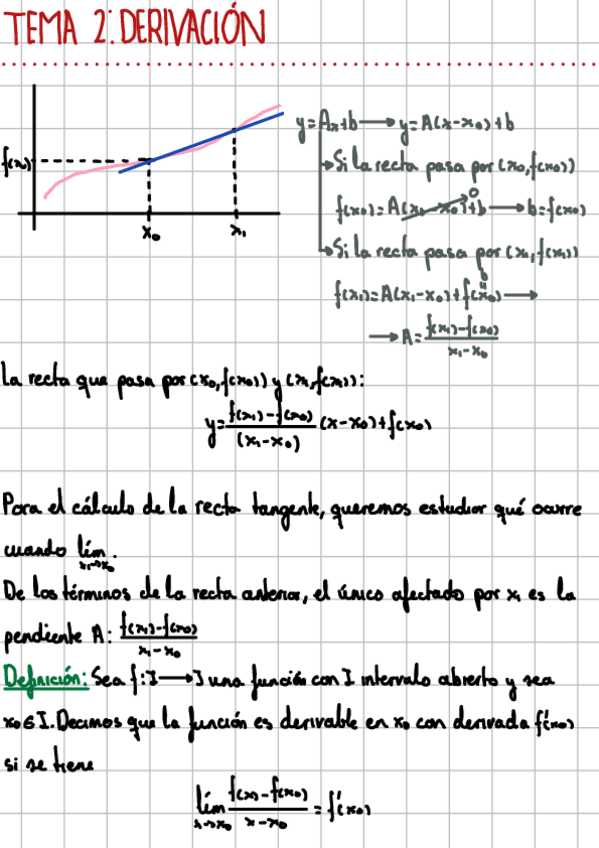 TEMA 2: DERIVACIÓN
f(x₀)
x₀
x₁
y=Ax+b → y=A(x-x₀)+b
Si la recta pasa por (x₀,f(x₀))
f(x₀)=A(x₀-x₀)+b → b=f(x₀)
0
Si la recta pasa por (x₁,f(x₁))
b
"
f(x₁)=A(x₁-x₀)+f(x₀) →
→ A= f(x₁)-f(x₀) / x₁-x₀
La recta que pasa por (x₀,f(x₀)) y (x₁,f(x₁)):
y= f(x₁)-f(x₀) / (x₁-x₀) (x-x₀)+f(x₀)
Para el cálculo de la recta tangente, queremos estudiar qué ocurre
cuando lím x₁→x₀.
De los términos de la recta anterior, el único afectado por x₁ es la
pendiente A: f(x₁)-f(x₀) / x₁-x₀
Definición: Sea f: I → J una función con I intervalo abierto y sea
x₀∈I. Decimos que la función es derivable en x₀ con derivada f'(x₀)
si se tiene
lím x→x₀ f(x)-f(x₀) / x-x₀ = f'(x₀)